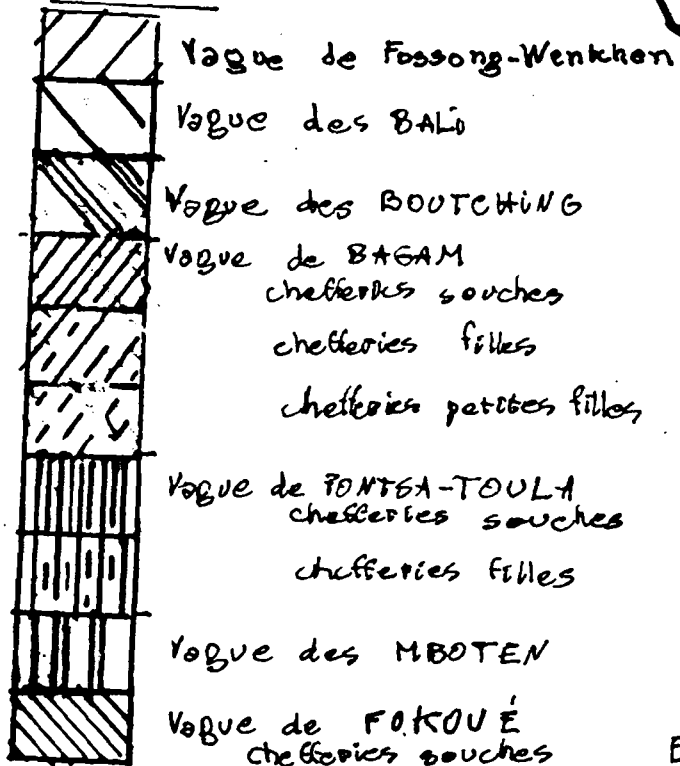 Vague de Fossong-Wentchen
Vague des BALI
Vague des BOUTCHING
Vague de BAGAM
chefferies souches
chefferies filles
chefferies petites filles
Vague de FONTSA-TOULA
chefferies souches
chefferies filles
Vague des MBOTEN
Vague de FOKOUÉ
chefferies souches
E